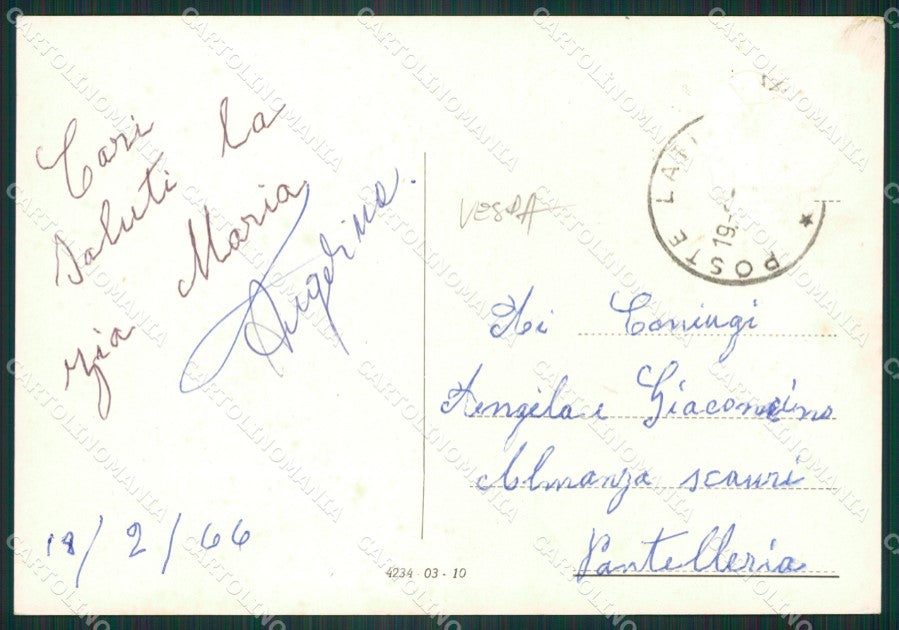 Cari
saluti la
zia Maria
Angelina.
18/2/66
VESPA
POSTE LATI
19.
Ai Coniugi
Angela e Giacomino
Almanza scauri
Pantelleria
4234 - 03 - 10
CARTOLINOMANIA